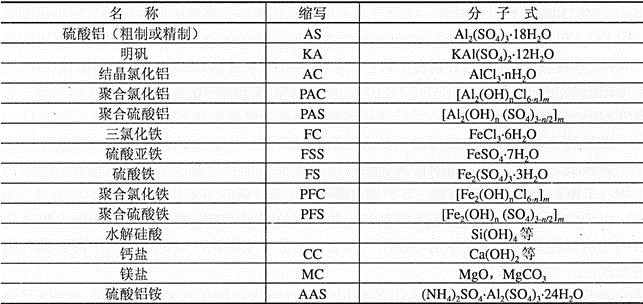 名 称 缩写 分 子 式
硫酸铝（粗制或精制） AS Al₂(SO₄)₃·18H₂O
明矾 KA KAl(SO₄)₂·12H₂O
结晶氯化铝 AC AlCl₃·nH₂O
聚合氯化铝 PAC [Al₂(OH)ₙCl₆₋ₙ]ₘ
聚合硫酸铝 PAS [Al₂(OH)ₙ (SO₄)₃₋ₙ/₂]ₘ
三氯化铁 FC FeCl₃·6H₂O
硫酸亚铁 FSS FeSO₄·7H₂O
硫酸铁 FS Fe₂(SO₄)₃·3H₂O
聚合氯化铁 PFC [Fe₂(OH)ₙCl₆₋ₙ]ₘ
聚合硫酸铁 PFS [Fe₂(OH)ₙ (SO₄)₃₋ₙ/₂]ₘ
水解硅酸 Si(OH)₄等
钙盐 CC Ca(OH)₂等
镁盐 MC MgO，MgCO₃
硫酸铝铵 AAS (NH₄)₂SO₄·Al₂(SO₄)₃·24H₂O